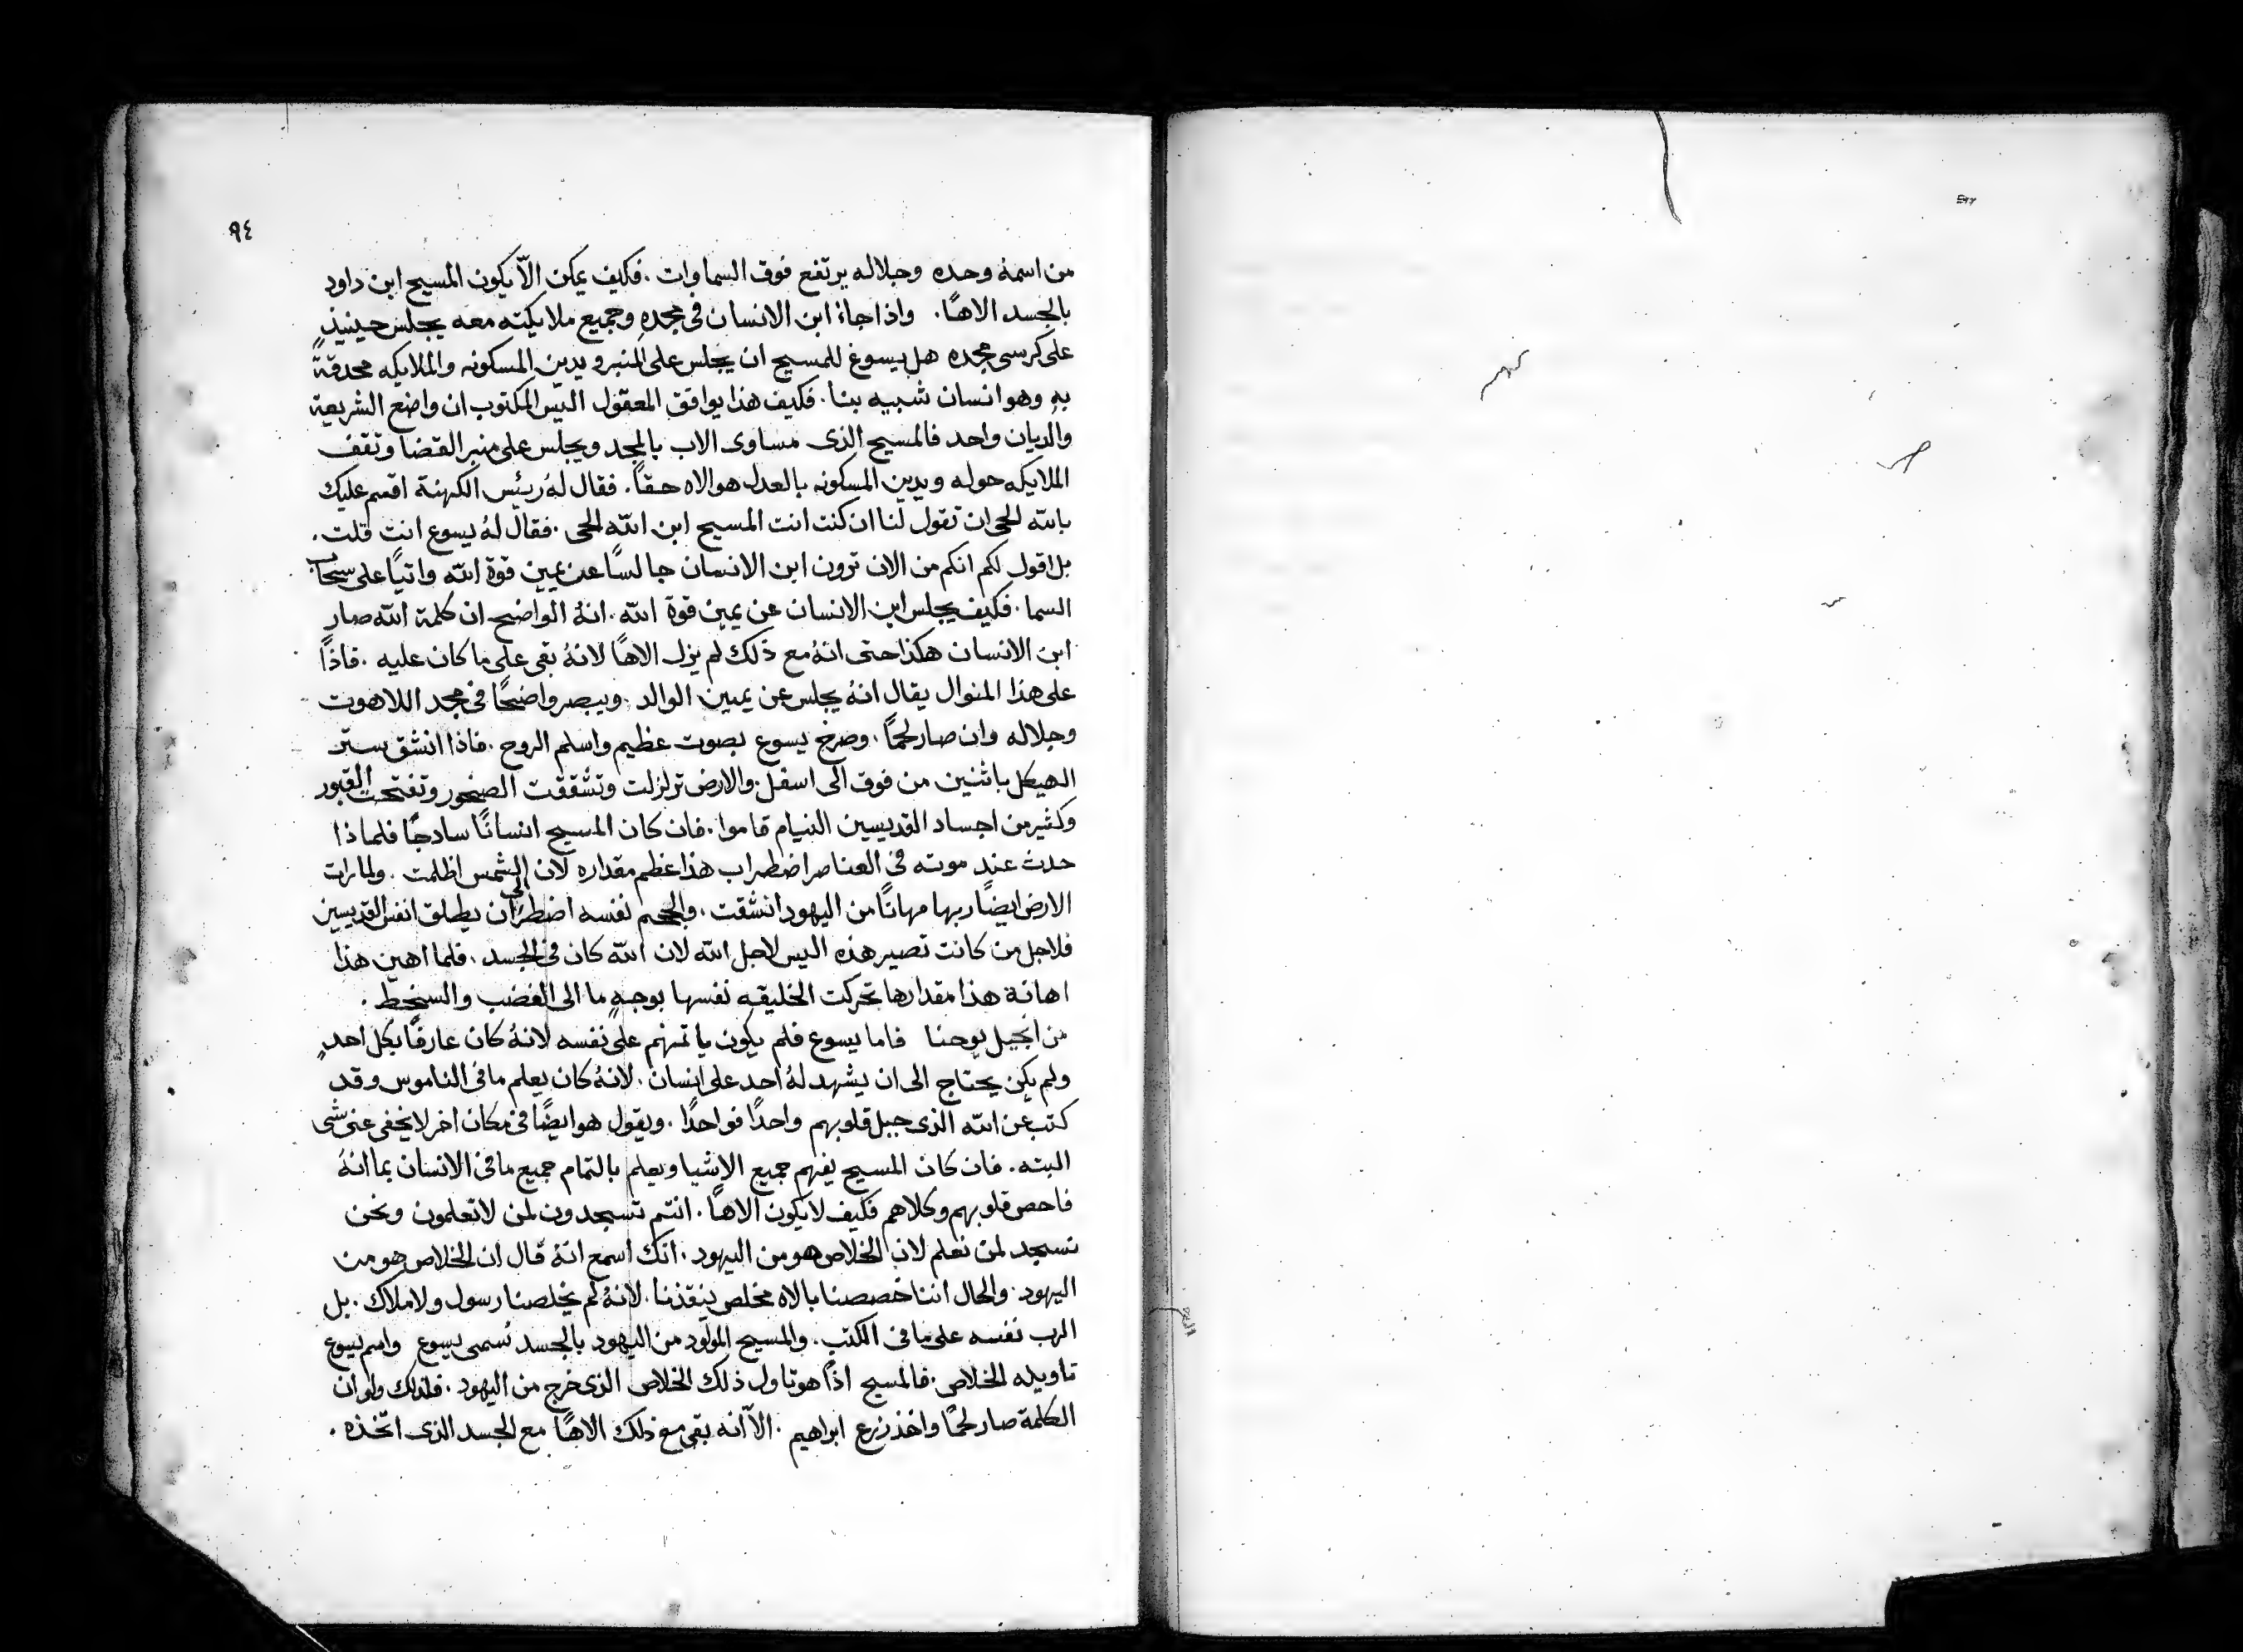 ٩٤
من اسمهُ وحده وجلاله يرتفع فوق السماوات . فكيف يمكن الّا يكون المسيح ابن داود
بالجسد الاهًا . واذا جاءَ ابن الانسان في مجدهِ وجميع ملايكته معه يجلس حينيذٍ
على كرسى مجده هل يسوغ للمسيح ان يجلس على المنبر ويدين المسكونه والملايكه محدقةً
بهِ وهو انسان شبيه بنا . فكيف هذا يوافق المعقول اليس المكتوب ان واضع الشريعة
والديان واحد فالمسيح الذى مساوى الاب بالمجد ويجلس على منبر القضا وتقف
الملايكه حوله ويدين المسكونه بالعدل هو الاه حقاً . فقال لهُ رييس الكهنة اقسم عليك
بالله الحى ان تقول لنا ان كنت انت المسيح ابن الله الحى . فقال لهُ يسوع انت قلت .
بل اقول لكم انكم من الان ترون ابن الانسان جالسًا عن يمين قوة الله واتيًا على سحاب
السما . فكيف يجلس ابن الانسان عن يمين قوة الله . انهُ الواضح ان كلمة الله صار
ابن الانسان هكذا حتى انهُ مع ذلك لم يزل الاهًا لانهُ بقى على ما كان عليه . فاذًا
على هذا المنوال يقال انهُ يجلس عن يمين الوالد . ويبصر واضحًا في مجد اللاهوت
وجلاله وان صار لحمًا . وصرخ يسوع بصوت عظيم واسلم الروح . فاذا انشق ستر
الهيكل باثنين من فوق الى اسفل . والارض تزلزلت وتشققت الصخور وتفتحت القبور
وكثير من اجساد القديسين النيام قاموا . فان كان المسيح انسانًا سادجًا فلماذا
حدث عند موته في العناصر اضطراب هذا عظم مقداره لان الشمس اظلمت . ولما رات
الارض ايضًا ربها مهانًا من اليهود انشقت . والجحيم نفسه اضطر الى ان يطلق انفس القديسين
فلاجل من كانت تصير هذه اليس لاجل الله لان الله كان في الجسد . فلما اهين هذا
اهانة هذا مقدارها تحركت الخليقه نفسها بوجهٍ ما الى الغضب والسخط .
من انجيل يوحنا فاما يسوع فلم يكون ياتمنهم على نفسه لانهُ كان عارفًا بكل احدٍ
ولم يكن يحتاج الى ان يشهد لهُ احد على انسان . لانهُ كان يعلم ما فى الناموس وقد
كتب عن الله الذى جبل قلوبهم واحدًا فواحدًا . ويقول هو ايضًا في مكان اخر لا يخفى عنى شى
البته . فان كان المسيح يفهم جميع الاشيا ويعلم بالتمام جميع ما فى الانسان بما انهُ
فاحص قلوبهم وكلاهم فكيف لا يكون الاهًا . انتم تسجدون لمن لا تعلمون ونحن
نسجد لمن نعلم لان الخلاص هو من اليهود . انك اسمع انهُ قال ان الخلاص هو من
اليهود . والحال اننا خصصنا بالاه مخلص ينقذنا . لانهُ لم يخلصنا رسول ولا ملاك . بل
الرب نفسه على ما فى الكتب . والمسيح المولود من اليهود بالجسد تسمى يسوع واسم يسوع
تاويله الخلاص . فالمسيح اذًا هو تاول ذلك الخلاص الذى خرج من اليهود . فلذلك ولو ان
الكلمة صار لحمًا واخذ زرع ابراهيم . الّا انه بقى مع ذلك الاهًا مع الجسد الذى اتخذه .